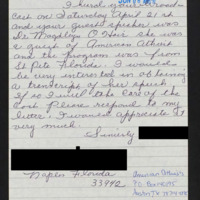 I heard your broad
cast on Saturday April 21 st
and your guest speaker was
Dr Madalyn O'Hair she was
a guest of American Atheist
and the program was from
St Pete Florida. I would
be very interested in obtaining
a transcript of her speech
If so I will take care of the
cost Please respond to my
letter. I would appreciate it
very much.
Sincerely
Naples Florida
33942
American Atheists
P.O. Box
Austin TX